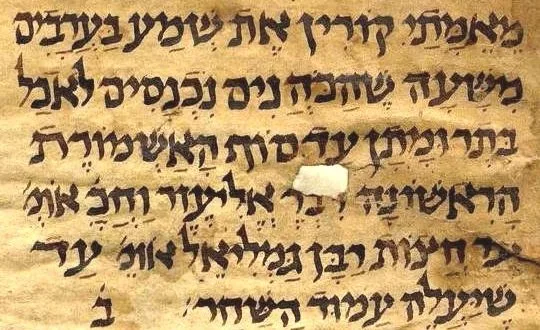 מאמתי קורין את שמע בערבים
משעה שהכהנים נכנסים לאכל
בתרומתן עד סוף האשמורת
הראשונה אליעזר וחכ' אומ'
עד חצות רבן גמליאל אומ' עד
שיעלה עמוד השחר ב